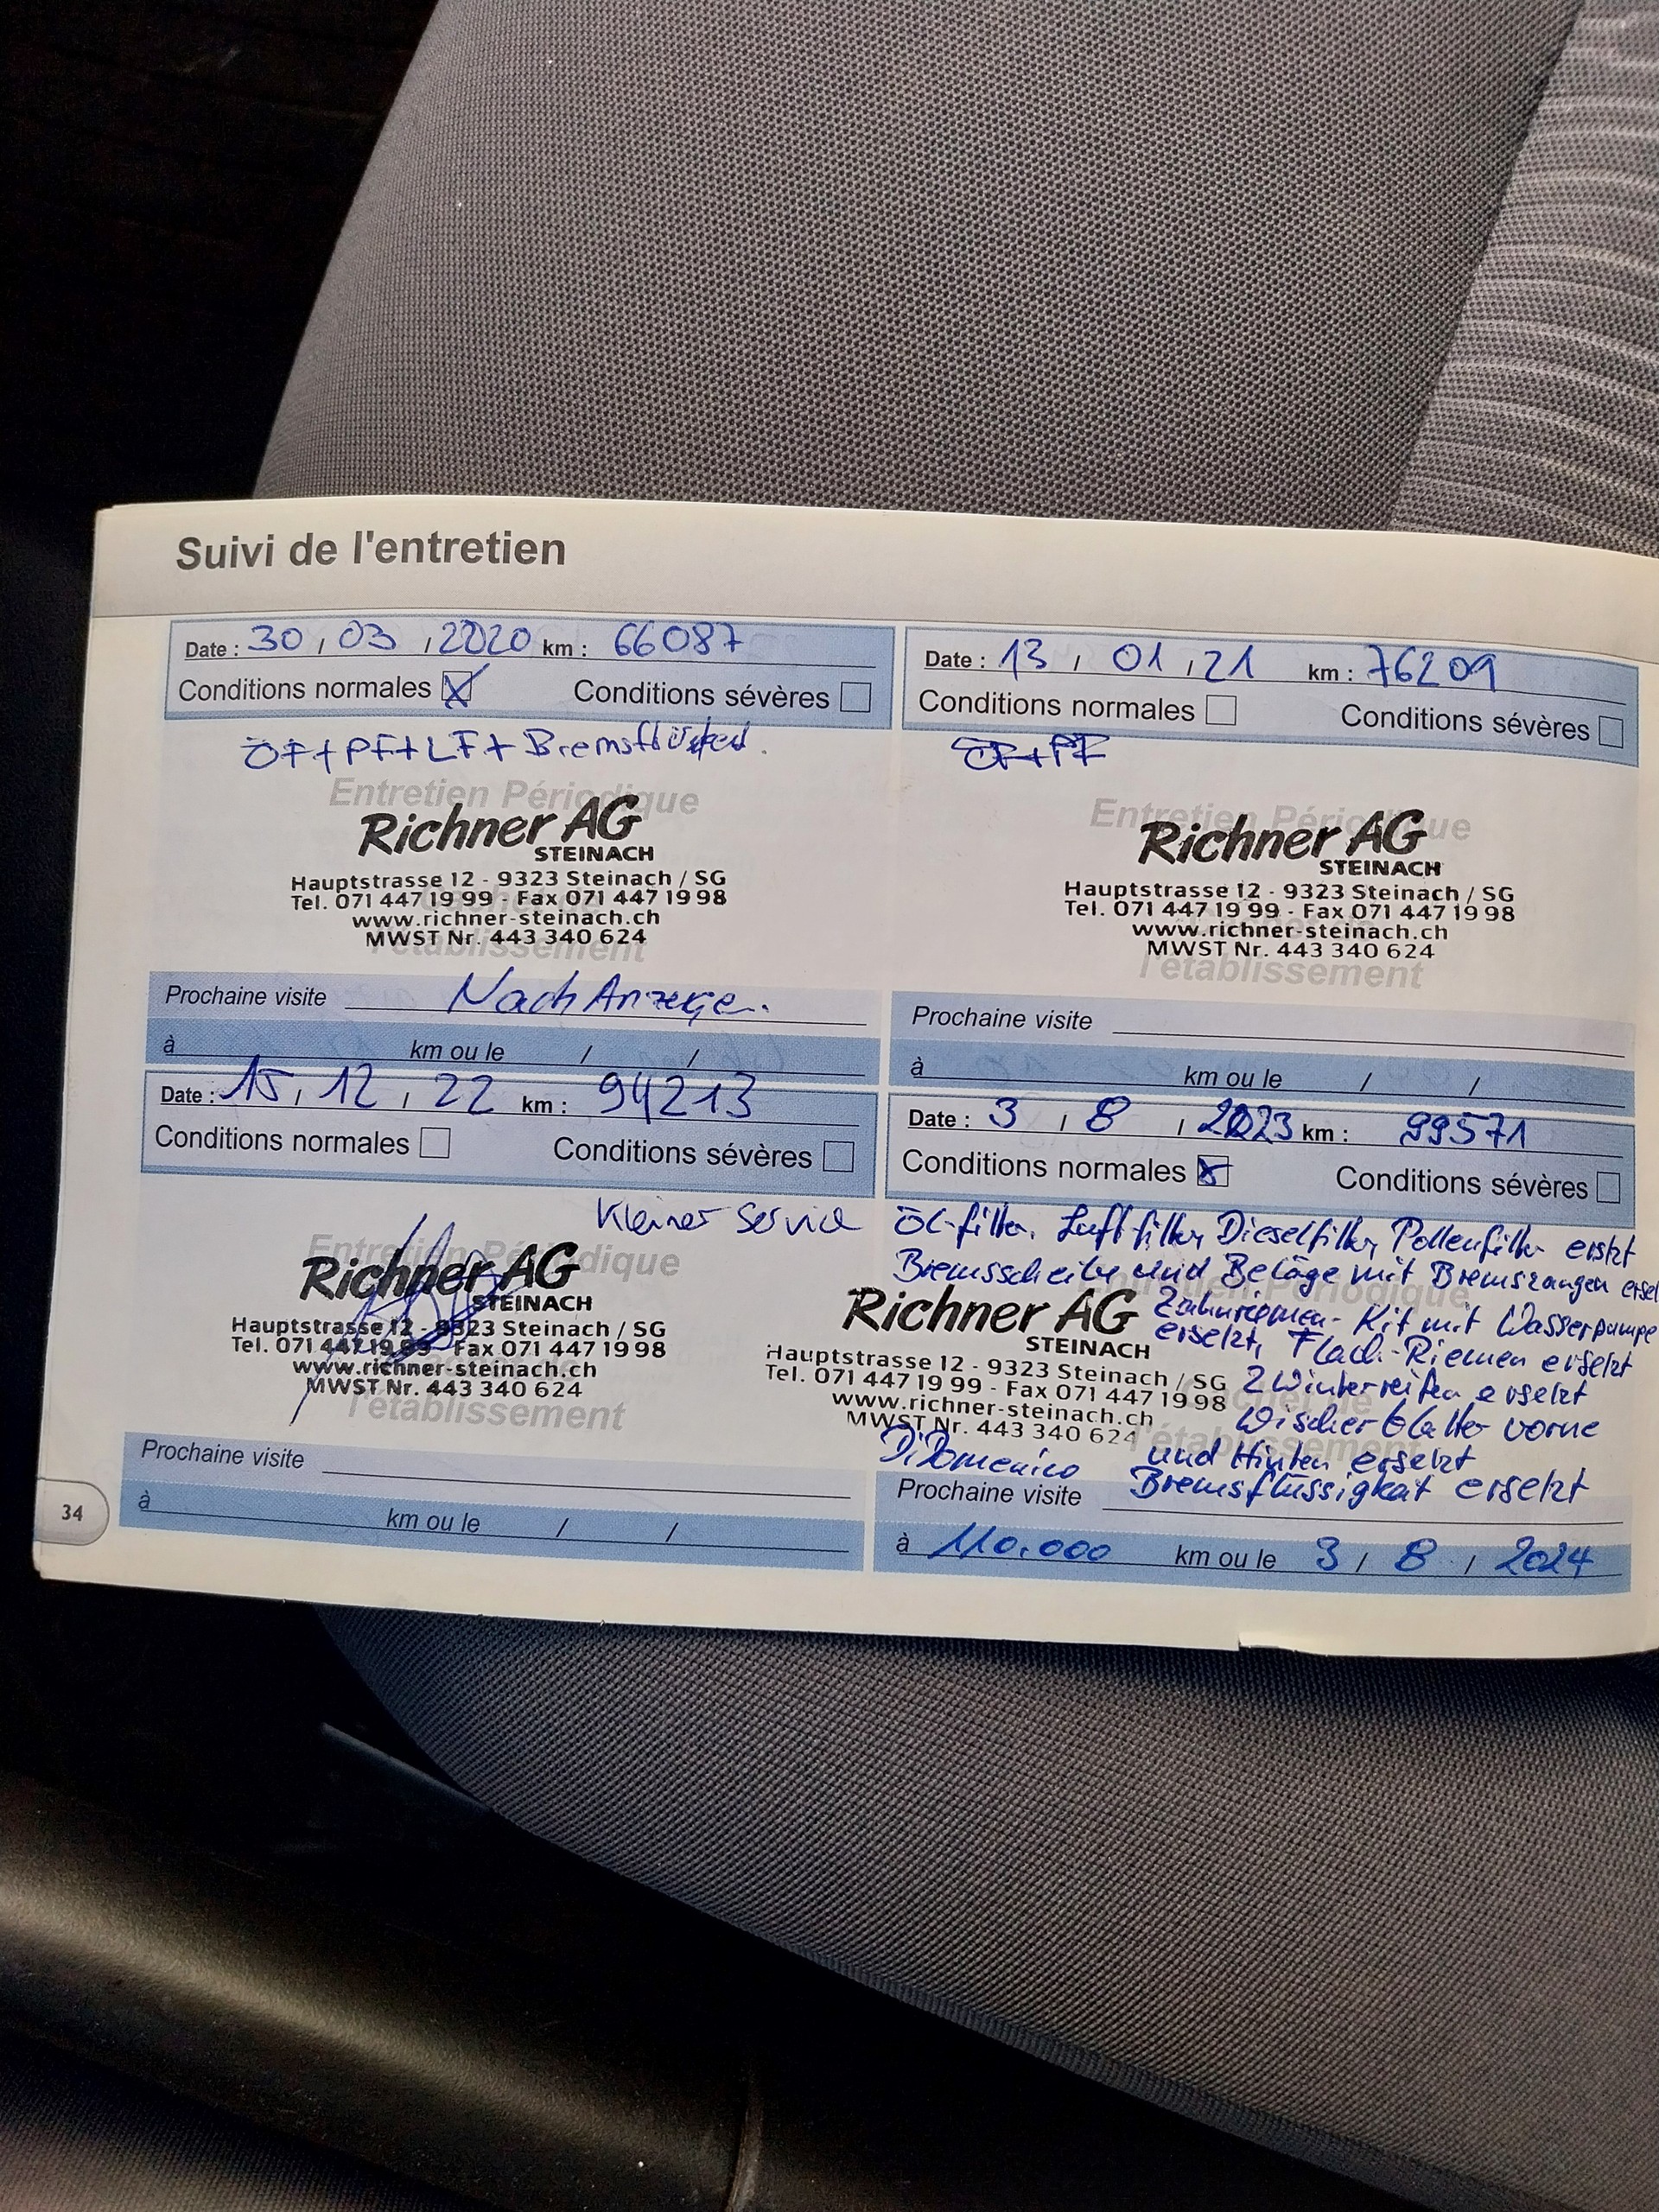 Suivi de l'entretien
Date : 30 / 03 / 2020 km : 66087
Conditions normales Conditions sévères
ÖF+PF+LF+ Bremsflüssked.
Entretien Périodique
Richner AG
STEINACH
Hauptstrasse 12 - 9323 Steinach / SG
Tel. 071 447 19 99 - Fax 071 447 19 98
www.richner-steinach.ch
MWST Nr. 443 340 624
l'établissement
Prochaine visite Nach Anzeige.
à km ou le / /
Date : 13 / 01 / 21 km : 76209
Conditions normales Conditions sévères
ÖF+PF
Entretien Périodique
Richner AG
STEINACH
Hauptstrasse 12 - 9323 Steinach / SG
Tel. 071 447 19 99 - Fax 071 447 19 98
www.richner-steinach.ch
MWST Nr. 443 340 624
l'établissement
Prochaine visite
à km ou le / /
Date : 15 / 12 / 22 km : 94213
Conditions normales Conditions sévères
Kleiner Service
Entretien Périodique
Richner AG
STEINACH
Hauptstrasse 12 - 9323 Steinach / SG
Tel. 071 447 19 99 - Fax 071 447 19 98
www.richner-steinach.ch
MWST Nr. 443 340 624
l'établissement
Prochaine visite
à km ou le / /
Date : 3 / 8 / 2023 km : 99571
Conditions normales Conditions sévères
Öl-filter, Luftfilter, Dieselfilter, Pollenfilter erstzt
Bremsscheibe und Beläge mit Bremszangen
Entretien Périodique
Richner AG Zahnriemen-Kit mit Wasserpumpe
STEINACH ersetzt, Flach-Riemen ersetzt
Hauptstrasse 12 - 9323 Steinach / SG 2 Winterreifen ersetzt
Tel. 071 447 19 99 - Fax 071 447 19 98
www.richner-steinach.ch Wischerblätter vorne
MWST Nr. 443 340 624 l'établissement
DiDomenico und Hinten ersetzt
Bremsflüssigkeit ersetzt
Prochaine visite
à 110.000 km ou le 3 / 8 / 2024
34